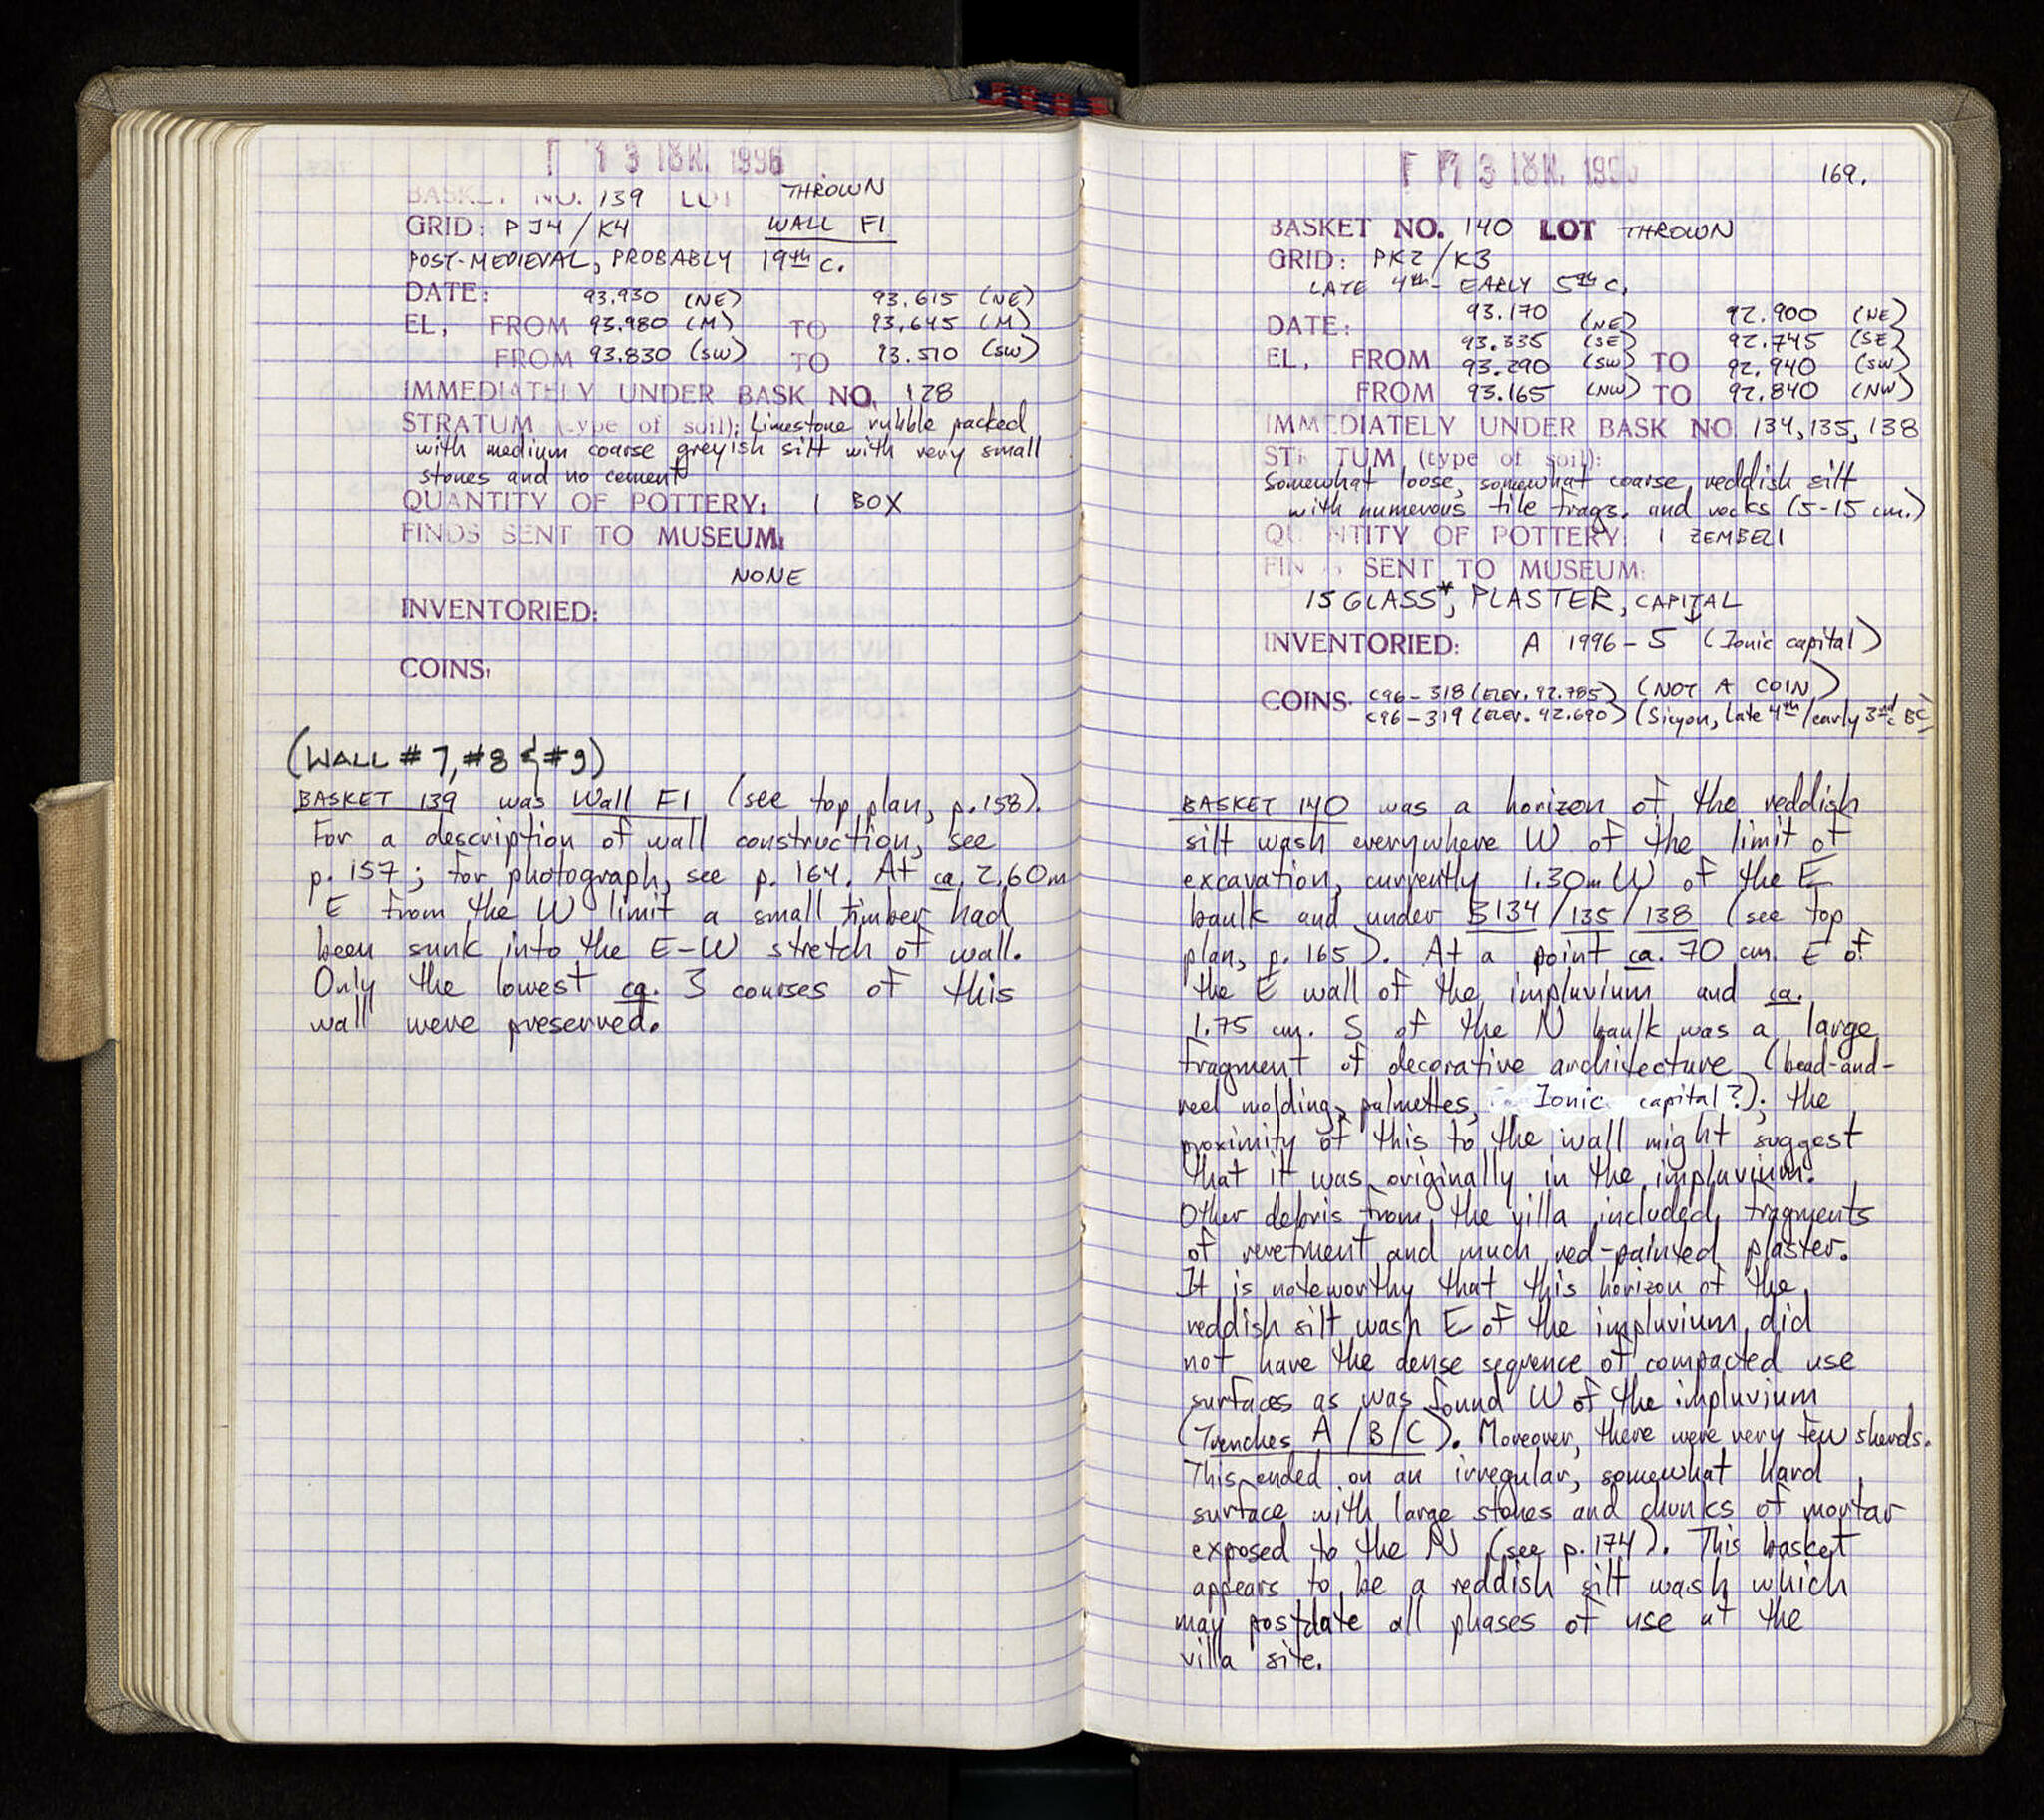 13 ΙΟΥΝ. 1996
BASKET NO. 139 LOT THROWN
GRID: PJ4/K4 WALL F1
POST-MEDIEVAL, PROBABLY 19th c.
DATE: 93.930 (NE) 93.615 (NE)
EL, FROM 93.980 (M) TO 93.645 (M)
FROM 93.830 (SW) TO 93.510 (SW)
IMMEDIATELY UNDER BASK NO. 128
STRATUM (type of soil): Limestone rubble packed
with medium coarse greyish silt with very small
stones and no cement
QUANTITY OF POTTERY: 1 BOX
FINDS SENT TO MUSEUM:
NONE
INVENTORIED:
COINS:
(WALL #7, #8 & #9)
BASKET 139 was Wall F1 (see top plan, p.158).
For a description of wall construction, see
p. 157; for photograph, see p. 164. At ca. 2.60m
E from the W limit a small timber had
been sunk into the E-W stretch of wall.
Only the lowest ca. 3 courses of this
wall were preserved.
169.
BASKET NO. 140 LOT THROWN
GRID: PK2/K3
LATE 4th - EARLY 5th C.
93.170 (NE) 92.900 (NE)
DATE: 93.335 (SE) 92.745 (SE)
EL, FROM 93.290 (SW) TO 92.940 (SW)
FROM 93.165 (NW) TO 92.840 (NW)
IMMEDIATELY UNDER BASK NO 134, 135, 138
STRATUM (type of soil):
Somewhat loose, somewhat coarse, reddish silt
with numerous tile frags. and rocks (5-15 cm.)
QUANTITY OF POTTERY: 1 ZEMBELI
FINDS SENT TO MUSEUM:
15 GLASS*, PLASTER, CAPITAL
INVENTORIED: A 1996-5 (Ionic capital)
COINS. C96-318 (ELEV. 92.785) (NOT A COIN)
C96-319 (ELEV. 92.690) (Sicyon, late 4th/early 3rd c BC)
BASKET 140 was a horizon of the reddish
silt wash everywhere W of the limit of
excavation, currently 1.30m W of the E
baulk and under B134/135/138 (see top
plan, p. 165). At a point ca. 70 cm. E of
the E wall of the impluvium and ca.
1.75 cm. S of the N baulk was a large
fragment of decorative architecture (bead-and-
reel molding, palmettes, Ionic capital?); the
proximity of this to the wall might suggest
that it was originally in the impluvium.
Other debris from the villa included fragments
of revetment and much red-painted plaster.
It is noteworthy that this horizon of the
reddish silt wash E of the impluvium did
not have the dense sequence of compacted use
surfaces as was found W of the impluvium
(Trenches A/B/C). Moreover, there were very few sherds.
This ended on an irregular, somewhat hard
surface with large stones and chunks of mortar
exposed to the N (see p. 174). This basket
appears to be a reddish silt wash which
may postdate all phases of use at the
villa site.